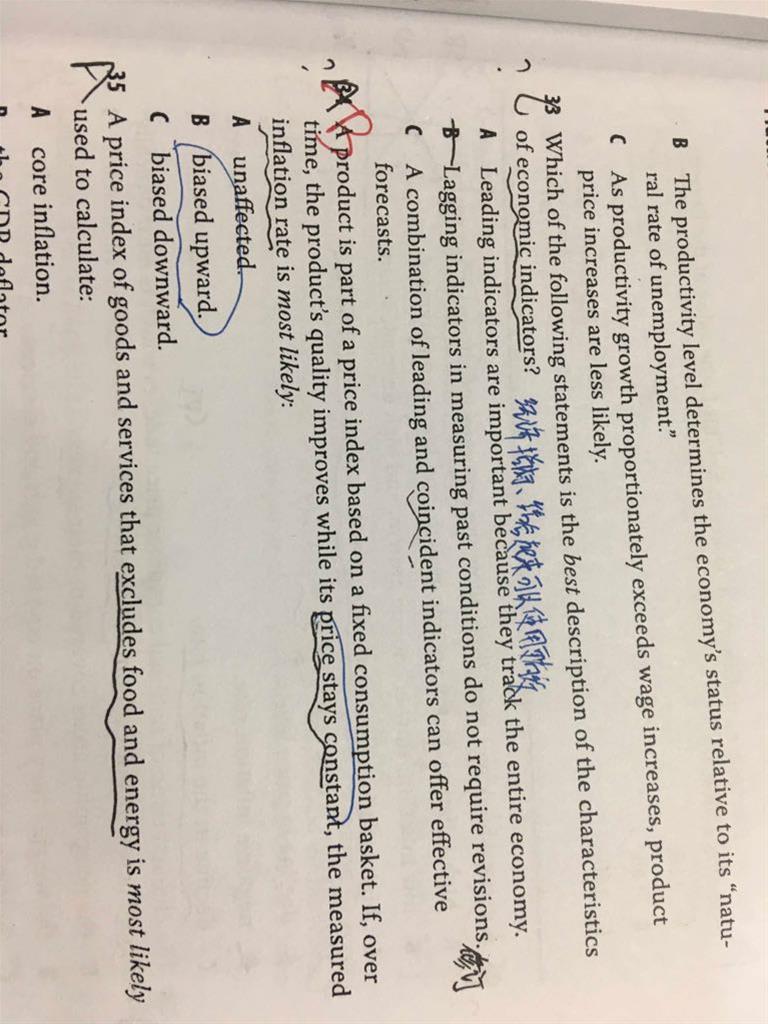 B The productivity level determines the economy's status relative to its "natu-
ral rate of unemployment."
C As productivity growth proportionately exceeds wage increases, product
price increases are less likely.
33 Which of the following statements is the best description of the characteristics
of economic indicators?
A Leading indicators are important because they track the entire economy.
B Lagging indicators in measuring past conditions do not require revisions. 修订
C A combination of leading and coincident indicators can offer effective
forecasts.
34 A product is part of a price index based on a fixed consumption basket. If, over
time, the product's quality improves while its price stays constant, the measured
inflation rate is most likely:
A unaffected.
B biased upward.
C biased downward.
35 A price index of goods and services that excludes food and energy is most likely
used to calculate:
A core inflation.
B the GDP deflator